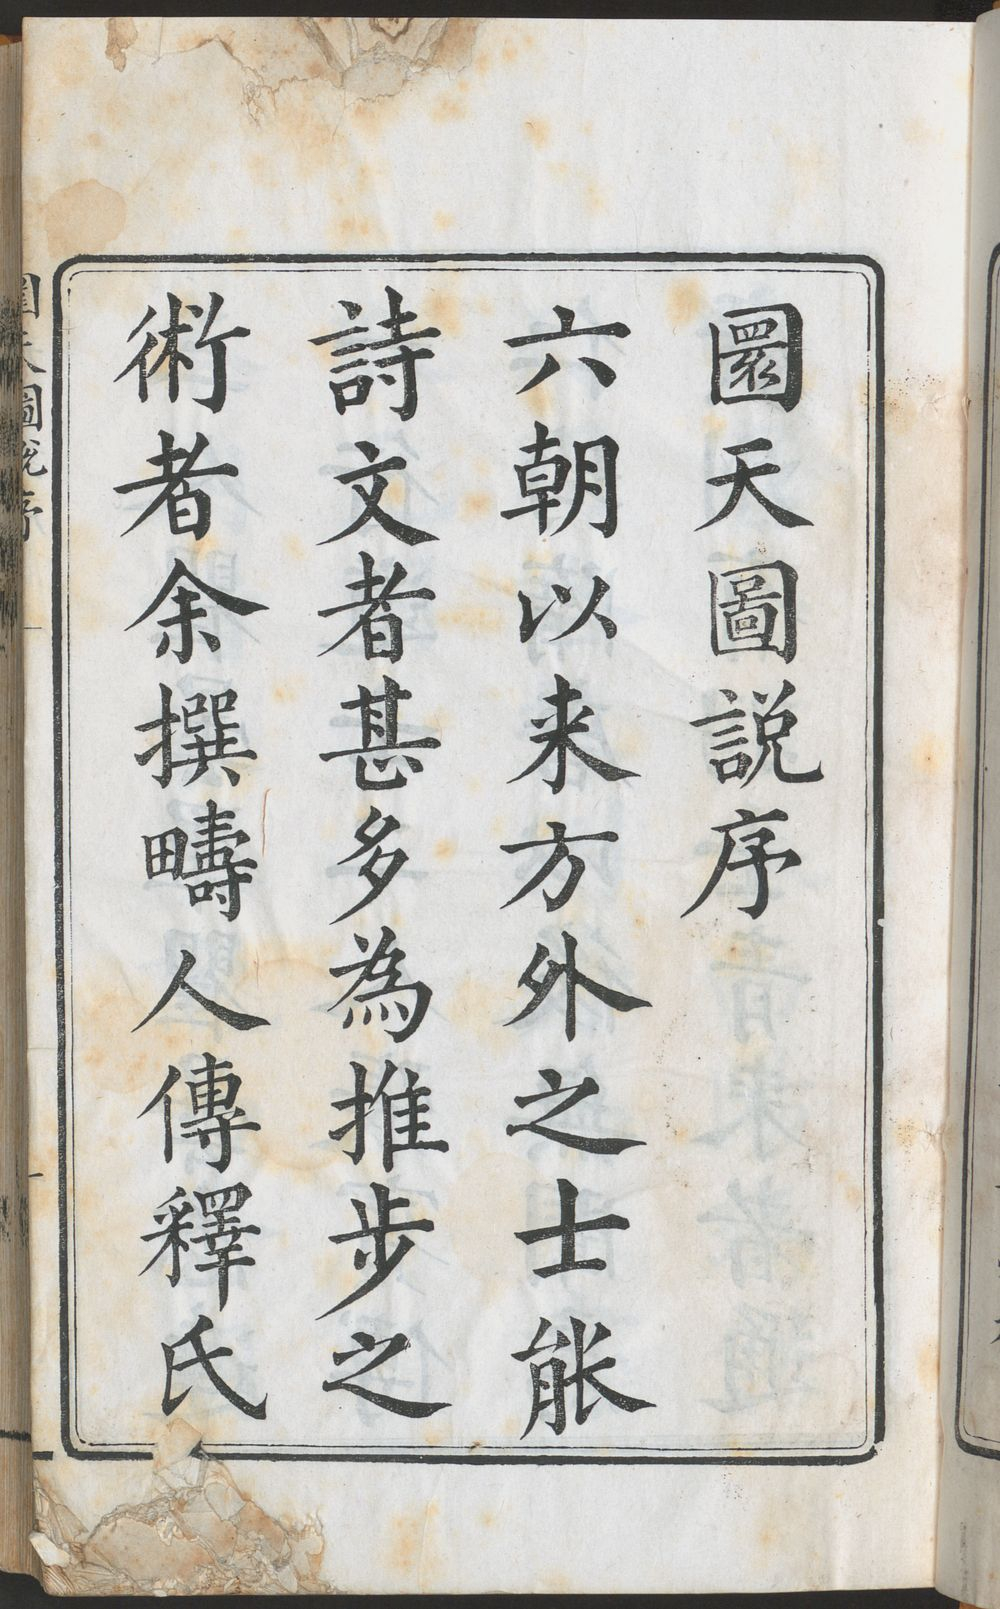 圜天圖說序
六朝以来方外之士能
詩文者甚多為推步之
術者余撰疇人傳釋氏
天圖說序